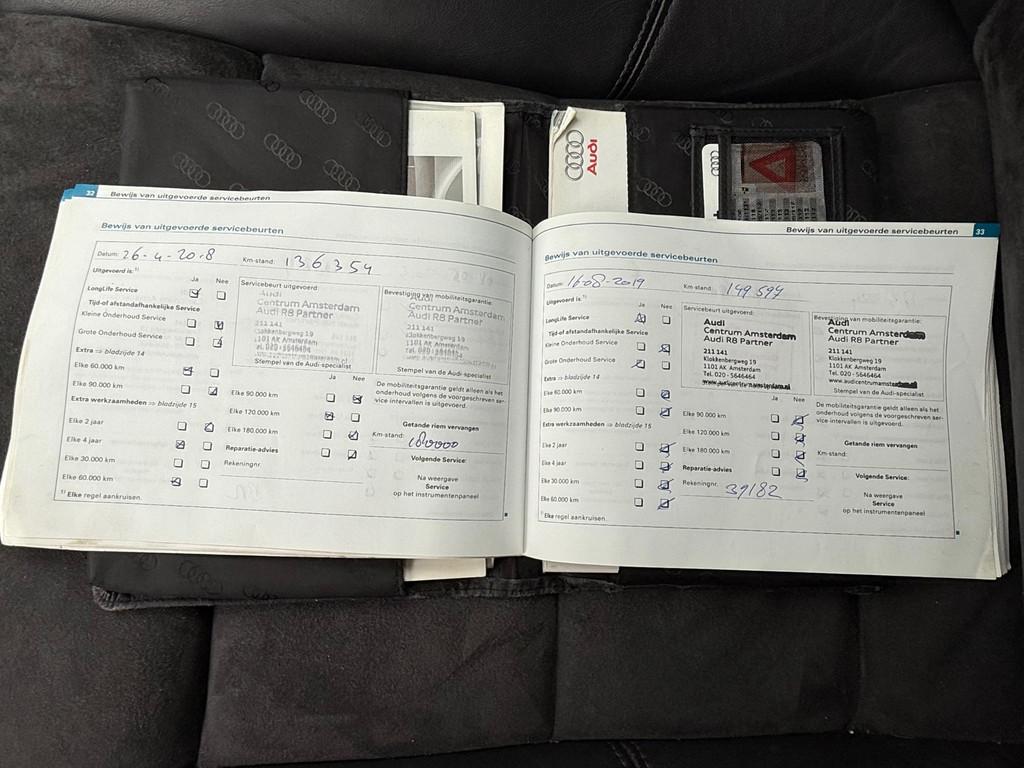 Audi
32 Bewijs van uitgevoerde servicebeurten
Bewijs van uitgevoerde servicebeurten
Datum: 26-4-2018 Km-stand: 136354
Uitgevoerd is: 1) Ja Nee
LongLife Service
Tijd-of afstandafhankelijke Service
Kleine Onderhoud Service
Grote Onderhoud Service
Extra ⇒ bladzijde 14
Elke 60.000 km
Elke 90.000 km
Extra werkzaamheden ⇒ bladzijde 15
Elke 2 jaar
Elke 4 jaar
Elke 30.000 km
Elke 60.000 km
1) Elke regel aankruisen.
Servicebeurt uitgevoerd:
Audi
Centrum Amsterdam
Audi R8 Partner
211 141
Klokkenbergweg 19
1101 AK Amsterdam
Tel. 020 - 5646464
Bevestiging van mobiliteitsgarantie:
Audi
Centrum Amsterdam
Audi R8 Partner
211 141
Klokkenbergweg 19
1101 AK Amsterdam
Tel. 020 - 5646464
Stempel van de Audi-specialist
Stempel van de Audi-specialist
Ja Nee
Elke 90.000 km
Elke 120.000 km
Elke 180.000 km
Reparatie-advies
Rekeningnr.
De mobiliteitsgarantie geldt alleen als het
onderhoud volgens de voorgeschreven ser-
vice intervallen is uitgevoerd.
Getande riem vervangen
Km-stand: 180000
Volgende Service:
Na weergave
Service
op het instrumentenpaneel
Bewijs van uitgevoerde servicebeurten 33
Bewijs van uitgevoerde servicebeurten
Datum: 16-08-2019 Km-stand: 149594
Uitgevoerd is: 1) Ja Nee
LongLife Service
Tijd-of afstandafhankelijke Service
Kleine Onderhoud Service
Grote Onderhoud Service
Extra ⇒ bladzijde 14
Elke 60.000 km
Elke 90.000 km
Extra werkzaamheden ⇒ bladzijde 15
Elke 2 jaar
Elke 4 jaar
Elke 30.000 km
Elke 60.000 km
1) Elke regel aankruisen.
Servicebeurt uitgevoerd:
Audi
Centrum Amsterdam
Audi R8 Partner
211 141
Klokkenbergweg 19
1101 AK Amsterdam
Tel. 020 - 5646464
www.audicentrumamsterdam.nl
Bevestiging van mobiliteitsgarantie:
Audi
Centrum Amsterdam
Audi R8 Partner
211 141
Klokkenbergweg 19
1101 AK Amsterdam
Tel. 020 - 5646464
www.audicentrumamsterdam.nl
Stempel van de Audi-specialist
Stempel van de Audi-specialist
Ja Nee
Elke 90.000 km
Elke 120.000 km
Elke 180.000 km
Reparatie-advies
Rekeningnr. 39182
De mobiliteitsgarantie geldt alleen als het
onderhoud volgens de voorgeschreven ser-
vice intervallen is uitgevoerd.
Getande riem vervangen
Km-stand:
Volgende Service:
Na weergave
Service
op het instrumentenpaneel